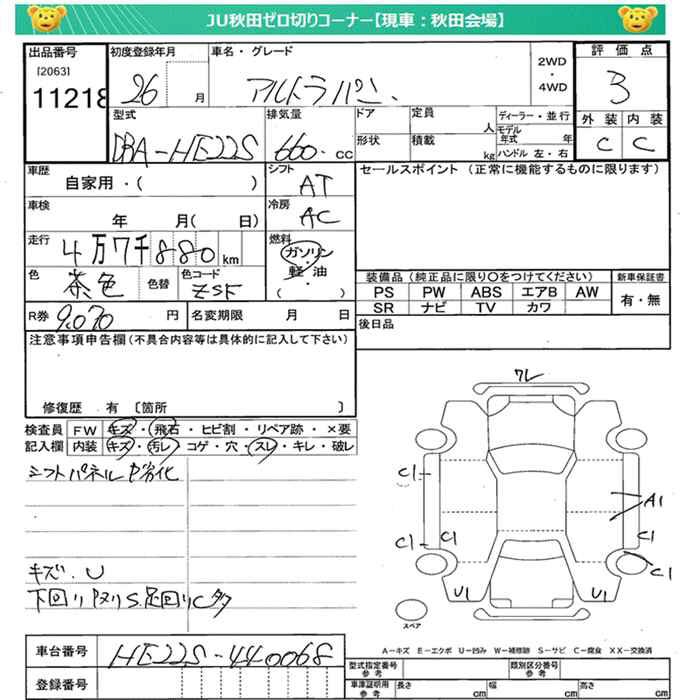 JU秋田ゼロ切りコーナー【現車：秋田会場】
出品番号 初度登録年月 車名・グレード 2WD・4WD 評価点
[2063]
11218 26 月 アルトラパン 3
型式 排気量 ドア 定員 人 ディーラー・並行 外装 内装
DBA-HE22S 660 cc 形状 積載 kg モデル年式 年 ハンドル 左・右 C C
車歴 シフト セールスポイント (正常に機能するものに限ります)
自家用・( ) AT
車検 冷房
年 月( 日) AC
走行 燃料
4万7千880km ガソリン・軽油
色 色替 色コード ( )
茶色 ZSF
装備品 (純正品に限り○をつけてください) 新車保証書
PS PW ABS エアB AW 有・無
SR ナビ TV カワ
R券 9,070 円 名変期限 月 日
後日品
注意事項申告欄(不具合内容等は具体的に記入して下さい)
修復歴 有 〔箇所 〕
検査員 FW キズ・飛石・ヒビ割・リペア跡・×要
記入欄 内装 キズ・汚レ・コゲ・穴・スレ・キレ・破レ
シフトパネル
劣化
キズ.U
下回り
S.足回りC
ワレ
C1
A1
C1 C1 C1
C1
U1 U1
スペア
A－キズ E－エクボ U－凹み W－補修跡 S－サビ C－腐食 XX－交換済
車台番号 HE22S-440068
登録番号
型式指定番号 参考 類別区分番号 参考
車庫証明用 参考 長さ cm 幅 cm 高さ cm